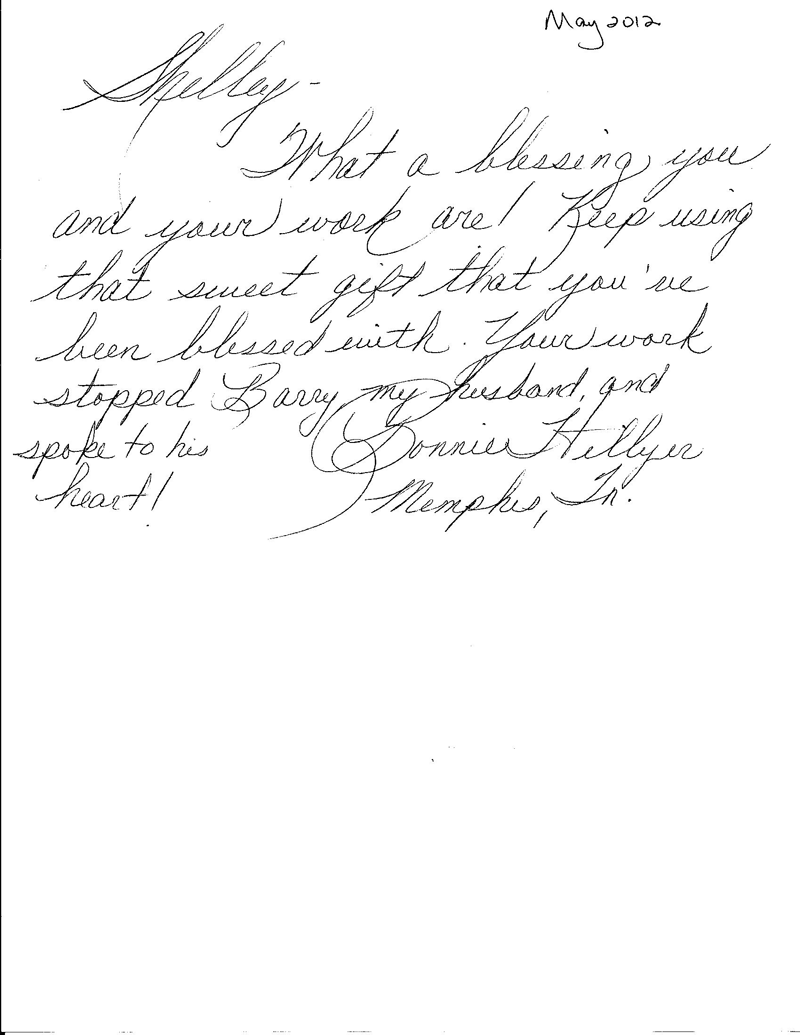 May 2012
Shelley -
What a blessing you
and your work are! Keep using
that sweet gift that you've
been blessed with. Your work
stopped Barry my husband, and
spoke to his
heart!
Bonnie Hillyer
Memphis, Tn.